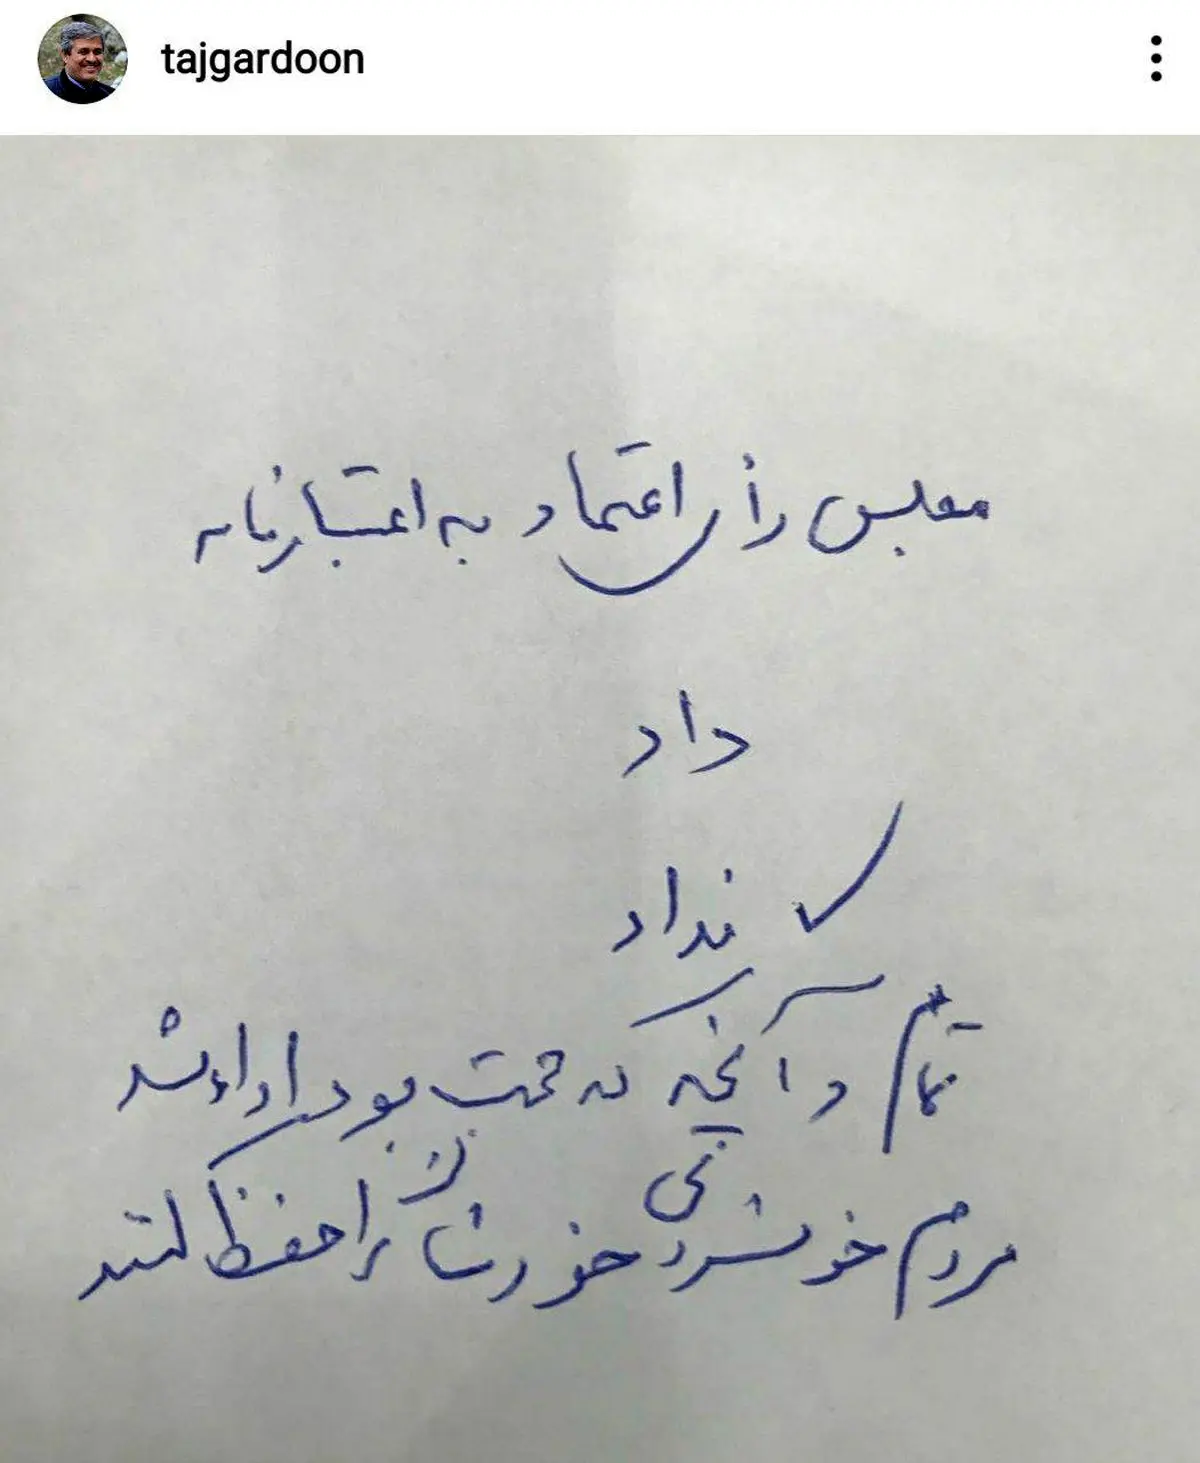 tajgardoon
مجلس رأی اعتماد به اعتبارنامه
داد
نداد
تمام و آنچه که تحت بود اداء شد
مردم خونسردی خودشان را حفظ کنند